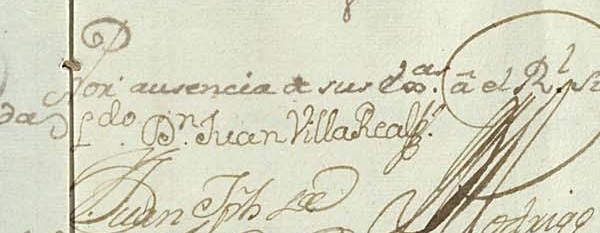 Por ausencia de sus Exas. â el Rl
Ldo. Dn. Juan VillaReal
Juan Jph de Rodrigo